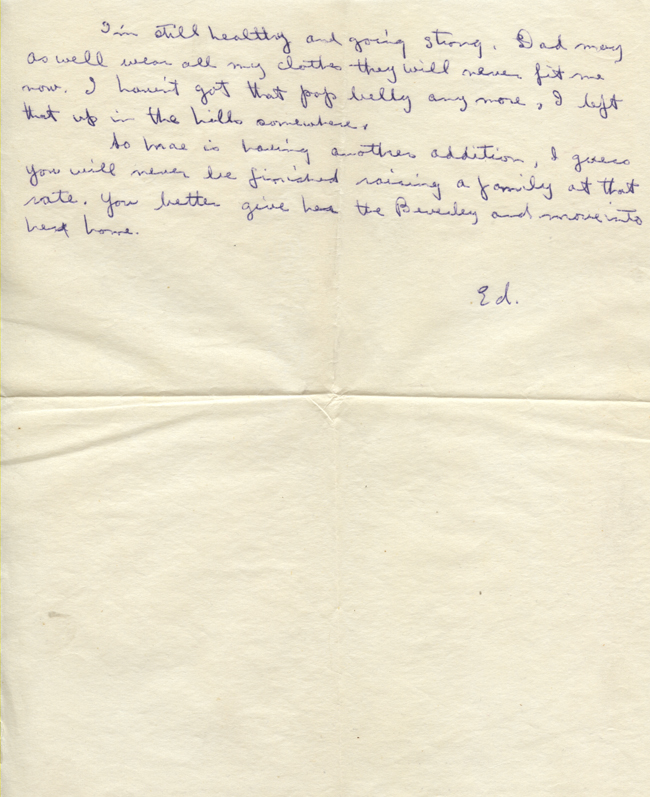 I'm still healthy and going strong. Dad may
as well wear all my clothes they will never fit me
now. I haven't got that pop belly any more, I left
that up in the hills somewhere.
So Mae is having another addition, I guess
you will never be finished raising a family at that
rate. You better give her the Beverley and move into
her home.
Ed.